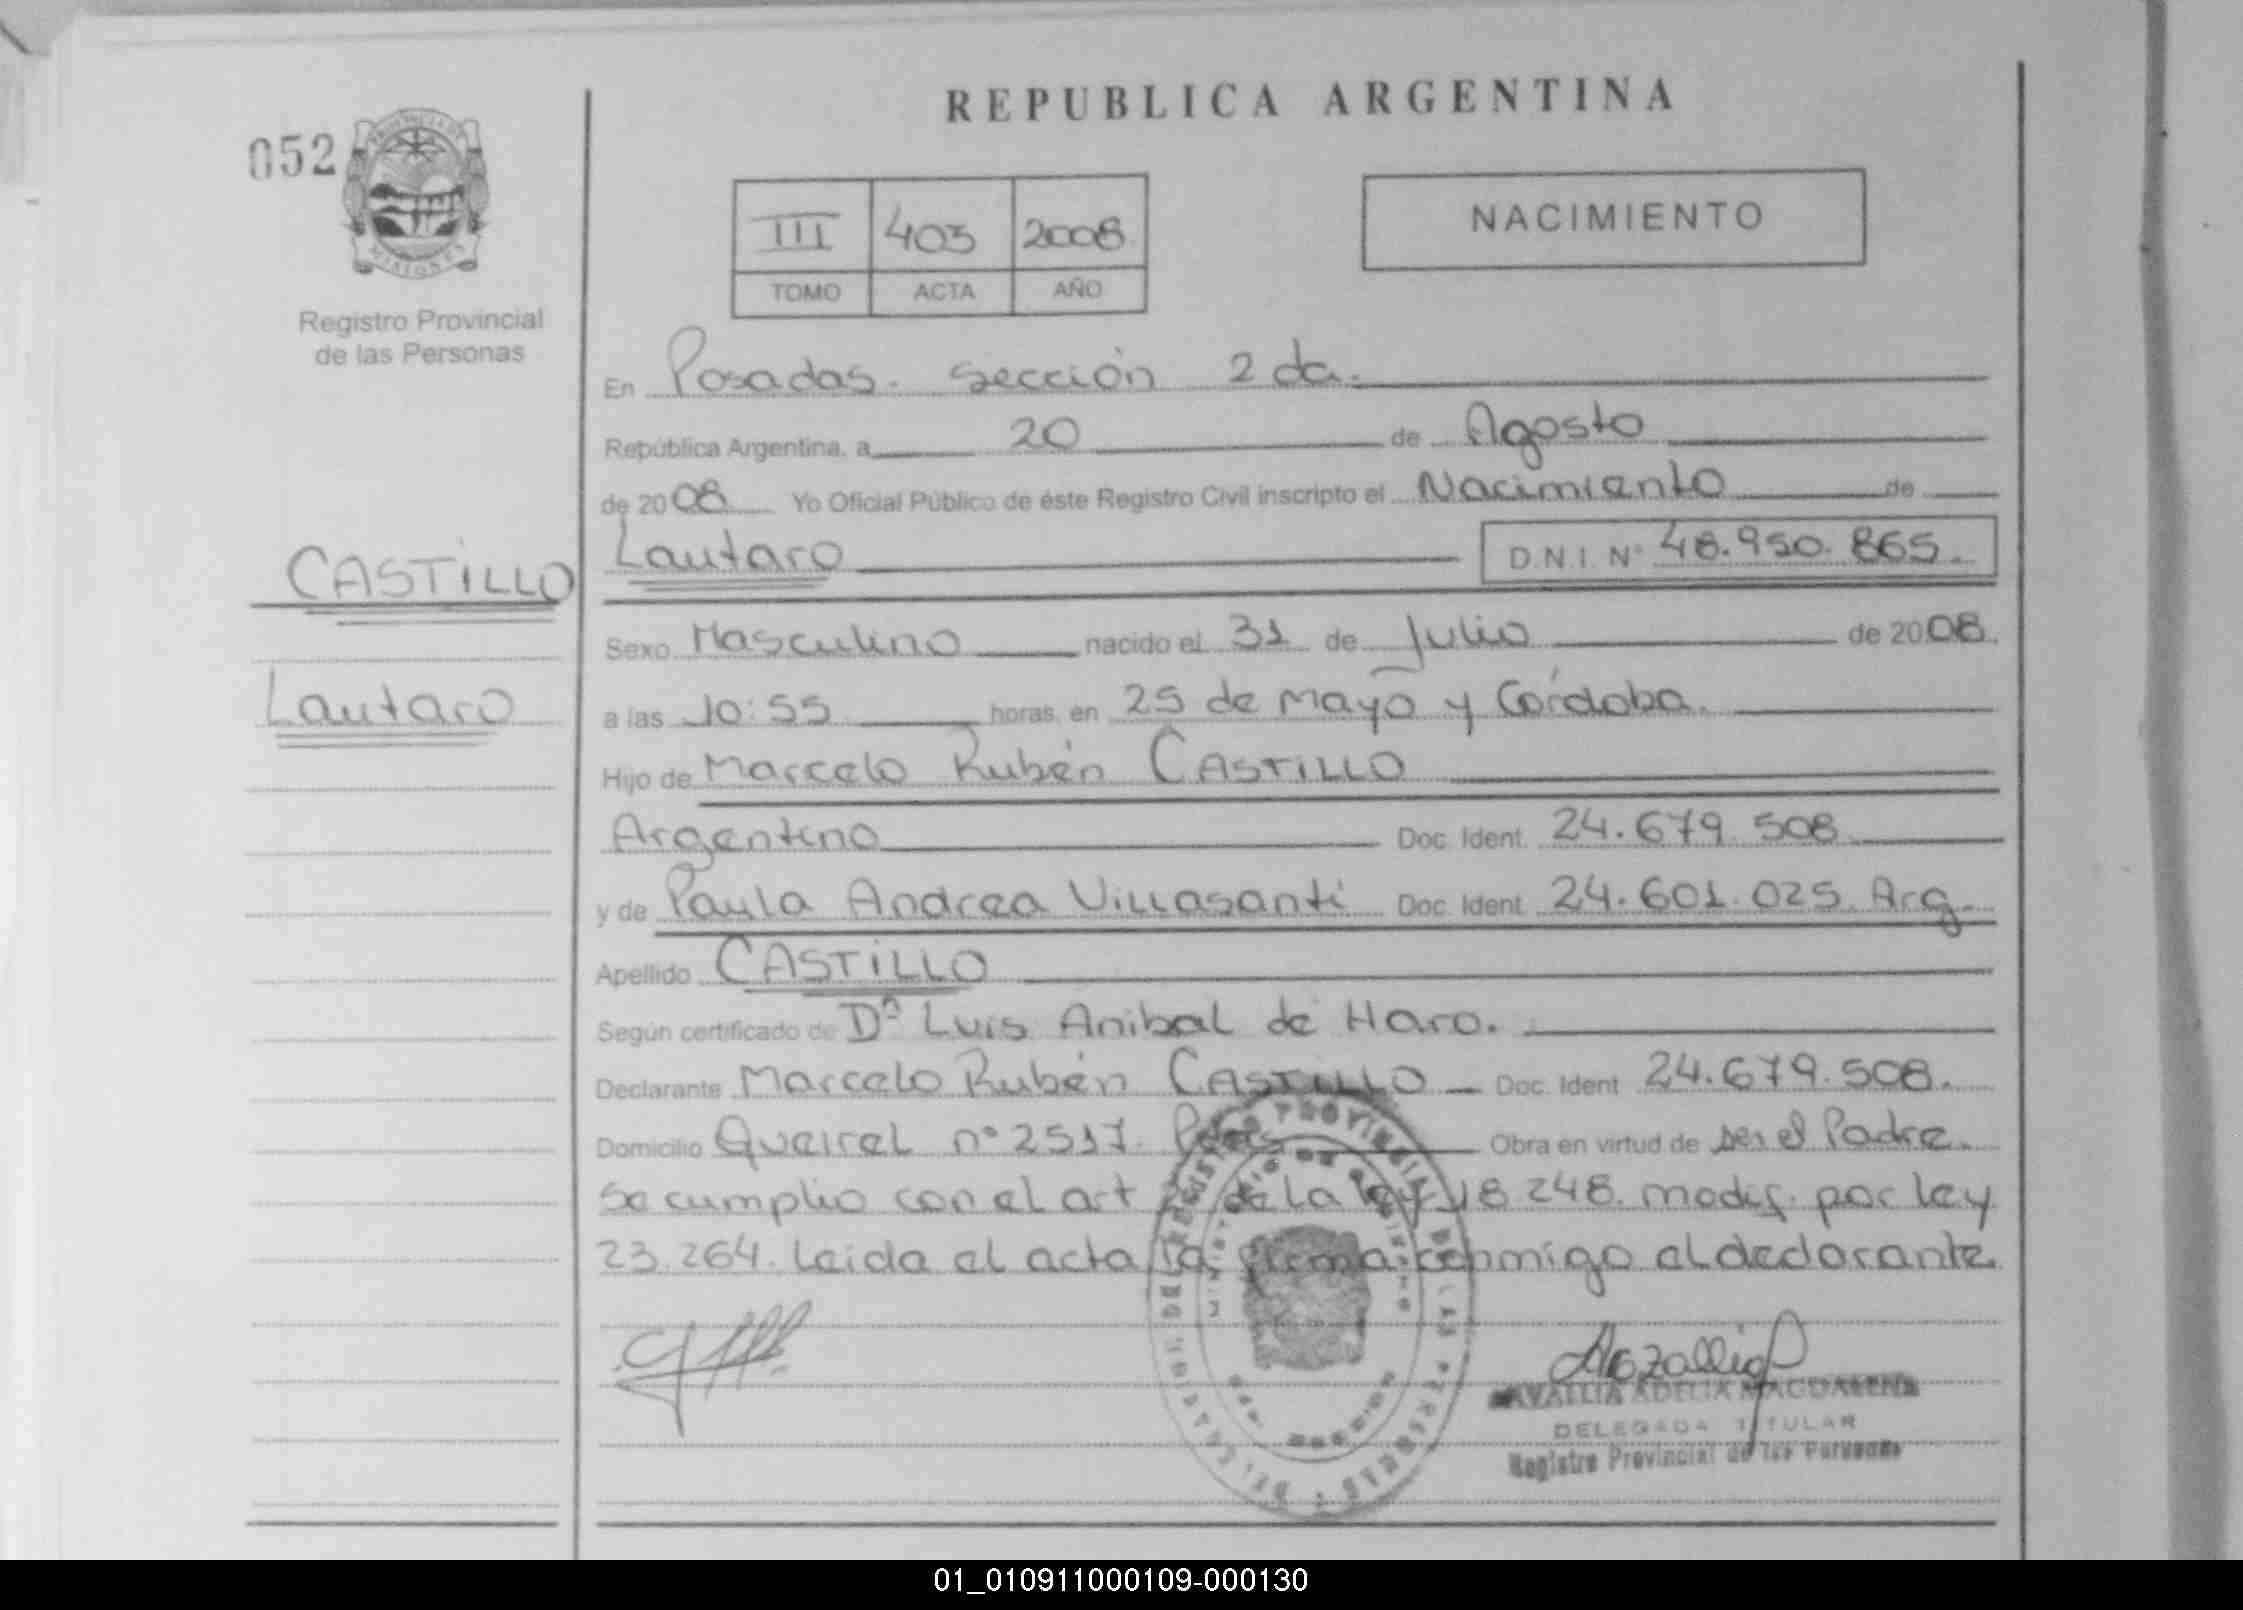 REPUBLICA ARGENTINA
052
PROVINCIA DE
MISIONES
Registro Provincial
de las Personas
III 403 2008
TOMO ACTA AÑO
NACIMIENTO
CASTILLO
Lautaro
En Posadas. sección 2da.
República Argentina, a 20 de Agosto
de 2008 Yo Oficial Público de éste Registro Civil inscripto el Nacimiento de
Lautaro D.N.I. Nº 48.950.865.
Sexo Masculino nacido el 31 de Julio de 2008.
a las 10:55 horas, en 25 de Mayo y Córdoba.
Hijo de Marcelo Rubén CASTILLO
Argentino Doc. Ident. 24.679.508
y de Paula Andrea Villasanti Doc. Ident 24.601.025. Arg.
Apellido CASTILLO
Según certificado de Dº Luis Anibal de Haro.
Declarante Marcelo Rubén CASTILLO Doc. Ident 24.679.508.
Domicilio Queirel nº 2517. Pdas Obra en virtud de ser el Padre.
Se cumplio con el art de la ley 18.248. modif. por ley
23.264. Leida el acta la firma conmigo el declarante
ADELIA MAGDALENA
DELEGADA TITULAR
Registro Provincial de las Personas
01_010911000109-000130